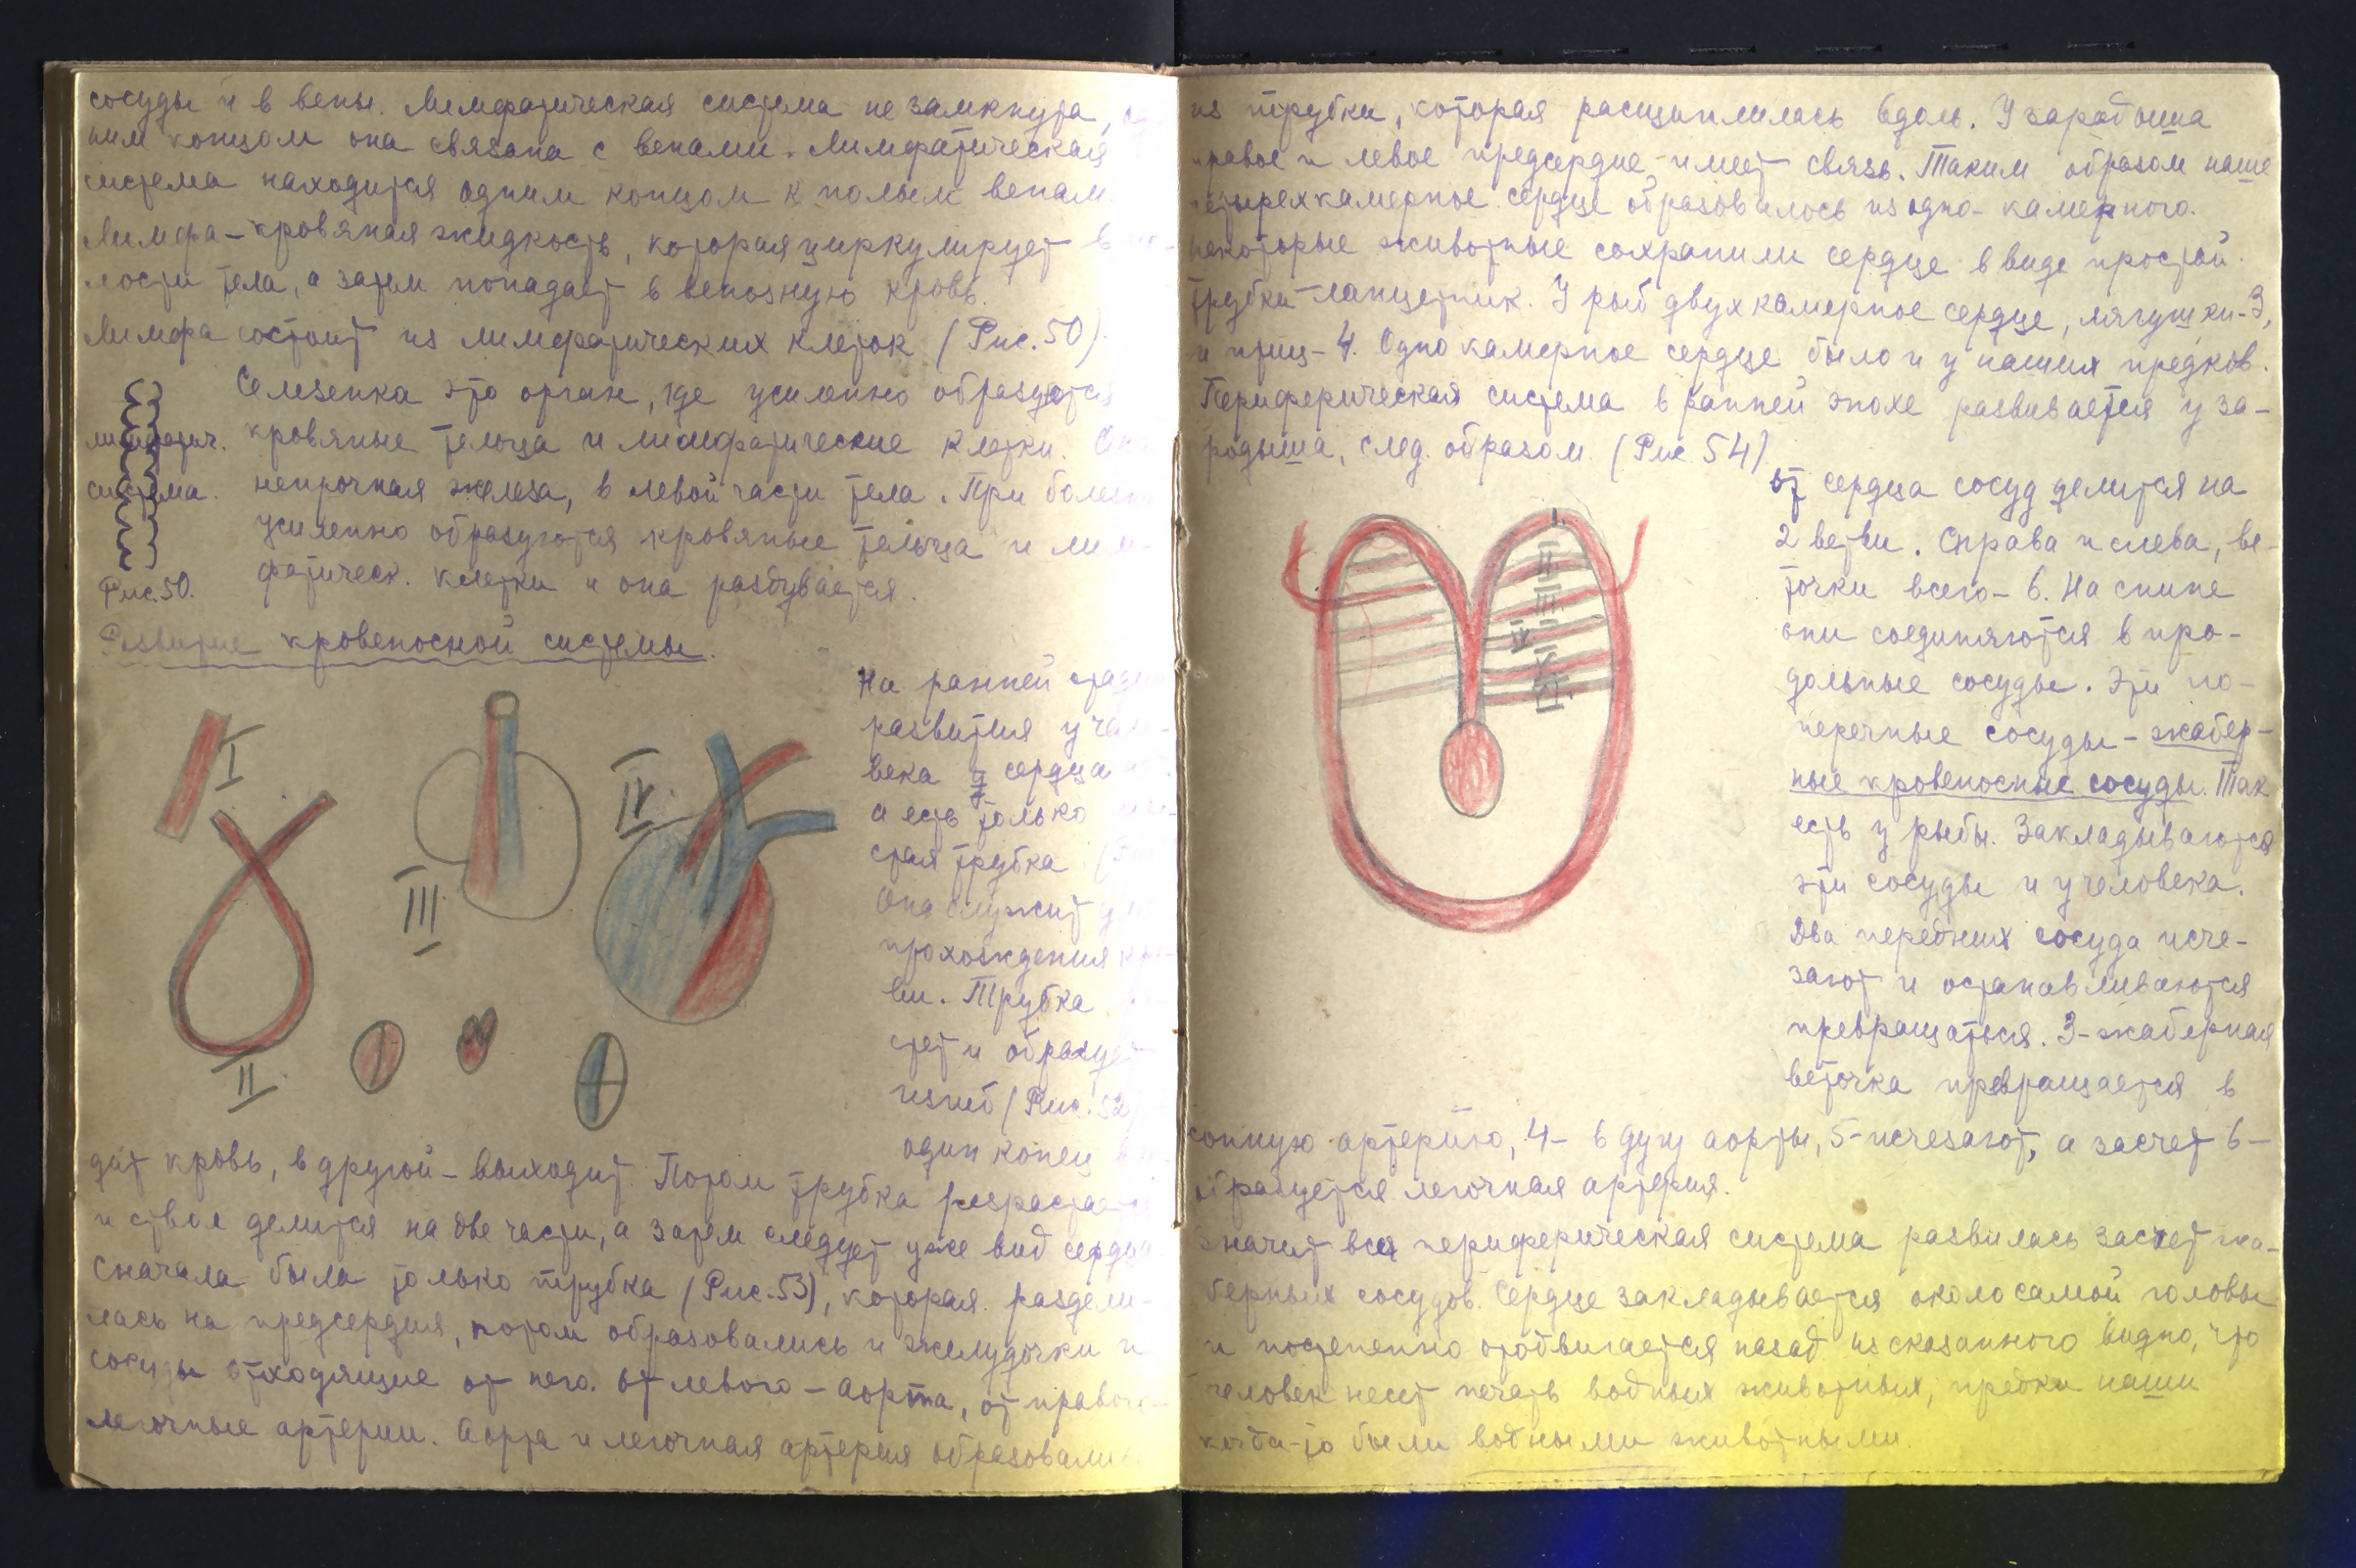 сосуды и в вены. Лимфатическая система не замкнута, од-
ним концом она связана с венами. Лимфатическая
система находится одним концом к полым венам.
Лимфа – кровяная жидкость, которая циркулирует в по-
лости тела, а затем попадает в венозную кровь.
Лимфа состоит из лимфатических клеток (Рис. 50).
Селезенка это орган, где усиленно образуются
кровяные тельца и лимфатические клетки. Она
непрочная железа, в левой части тела. При болезни
усиленно образуются кровяные тельца и лим-
фатическ. клетки и она раздувается.
лимфатич.
система.
Рис. 50.
Развитие кровеносной системы.
I
II
III
IV
На ранней стадии
развития у чело-
века сердца нет
а есть только
стая трубка
Она служит для
прохождения кро-
ви. Трубка
стет и образует
изгиб (Рис. 52)
один конец вхо-
дит кровь, в другой – выходит. Потом трубка разрастается
и ствол делится на две части, а затем следует уже вид сердца.
Сначала была только трубка (Рис. 53), которая раздели-
лась на предсердия, потом образовались и желудочки и
сосуды отходящие от него. От левого – аорта, от правого –
легочные артерии. Аорта и легочная артерия образовались
из трубки, которая расщипилась вдоль. У зародыша
правое и левое предсердие имеет связь. Таким образом наше
четырехкамерное сердце образовалось из одно-камерного.
Некоторые животные сохранили сердце в виде простой
трубки – ланцетник. У рыб двухкамерное сердце, лягушки – 3,
и птиц – 4. Однокамерное сердце было и у наших предков.
Периферическая система в ранней эпохе развивается у за-
родыша, след. образом. (Рис. 54)
I
II
III
IV
V
VI
от сердца сосуд делится на
2 ветви. Справа и слева, ве-
точки всего – 6. На спине
они соединяются в про-
дольные сосуды. Эти по-
перечные сосуды – жабер-
ные кровеносные сосуды. Так
есть у рыбы. Закладываются
эти сосуды и у человека.
Два передних сосуда исче-
зают и останавливаются
превращаться. 3 – жаберная
веточка превращается в
сонную артерию, 4 – в дугу аорты, 5 – исчезают, а засчет 6 –
образуется легочная артерия.
Значит вся периферическая система развилась засчет жа-
берных сосудов. Сердце закладывается около самой головы
и постепенно отодвигается назад. Из сказанного видно, что
человек несет печать водных животных, предки наши
когда-то были водными животными.